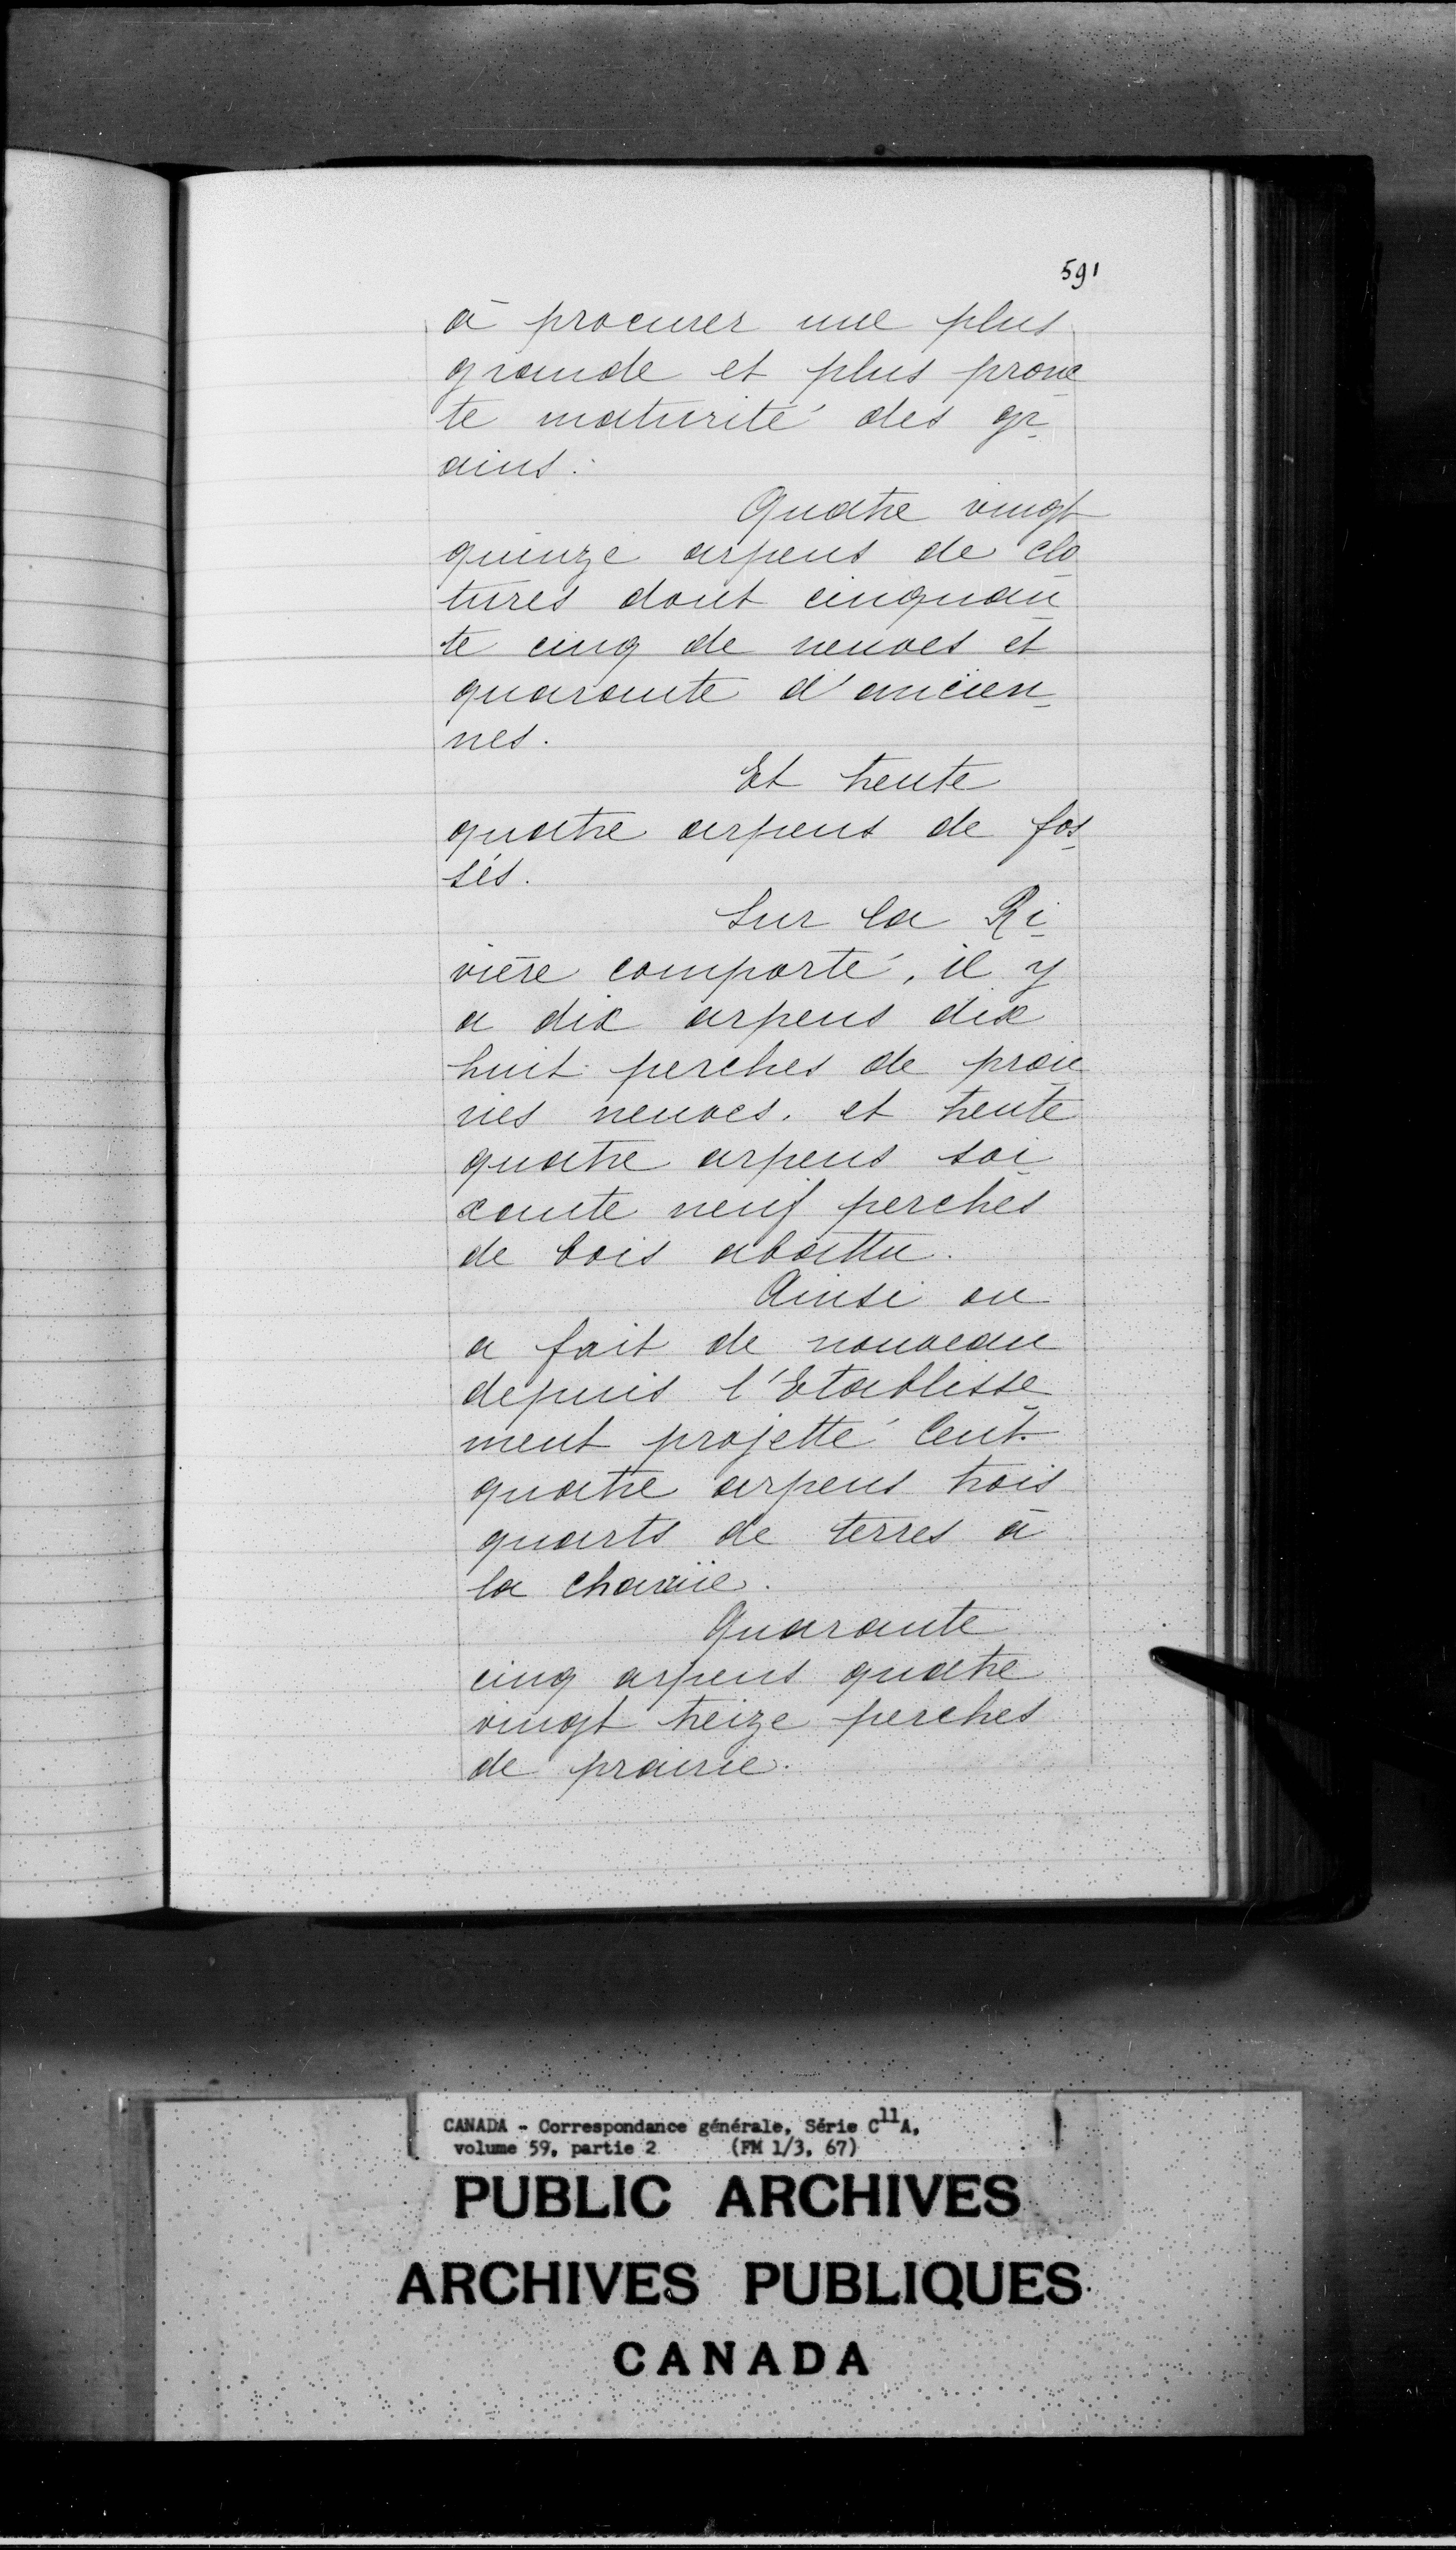 591
à procurer une plus
grande et plus prone
te maturité des gr-
ains.
Quatre vingt
quinze arpens de clo
tures dont cinquan
te cinq de neuves et
quarante d'ancien-
nes.
Et trente
quatre arpens de fos-
sés.
Sur la Ri-
vière comporté, il y
a dix arpens dix
huit perches de prai
ries neuves. et trente
quatre arpens soi-
xante neuf perches
de bois abattu.
Ainsi on
a fait de nouveau
depuis l'Etablisse
ment projetté Cent
quatre arpens trois
quarts de terres à
la charüe.
Quarante
cinq arpens quatre
vingt treize perches
de prairie.
CANADA - Correspondance générale, Série C11A,
volume 59, partie 2 (FM 1/3, 67)
PUBLIC ARCHIVES
ARCHIVES PUBLIQUES
CANADA